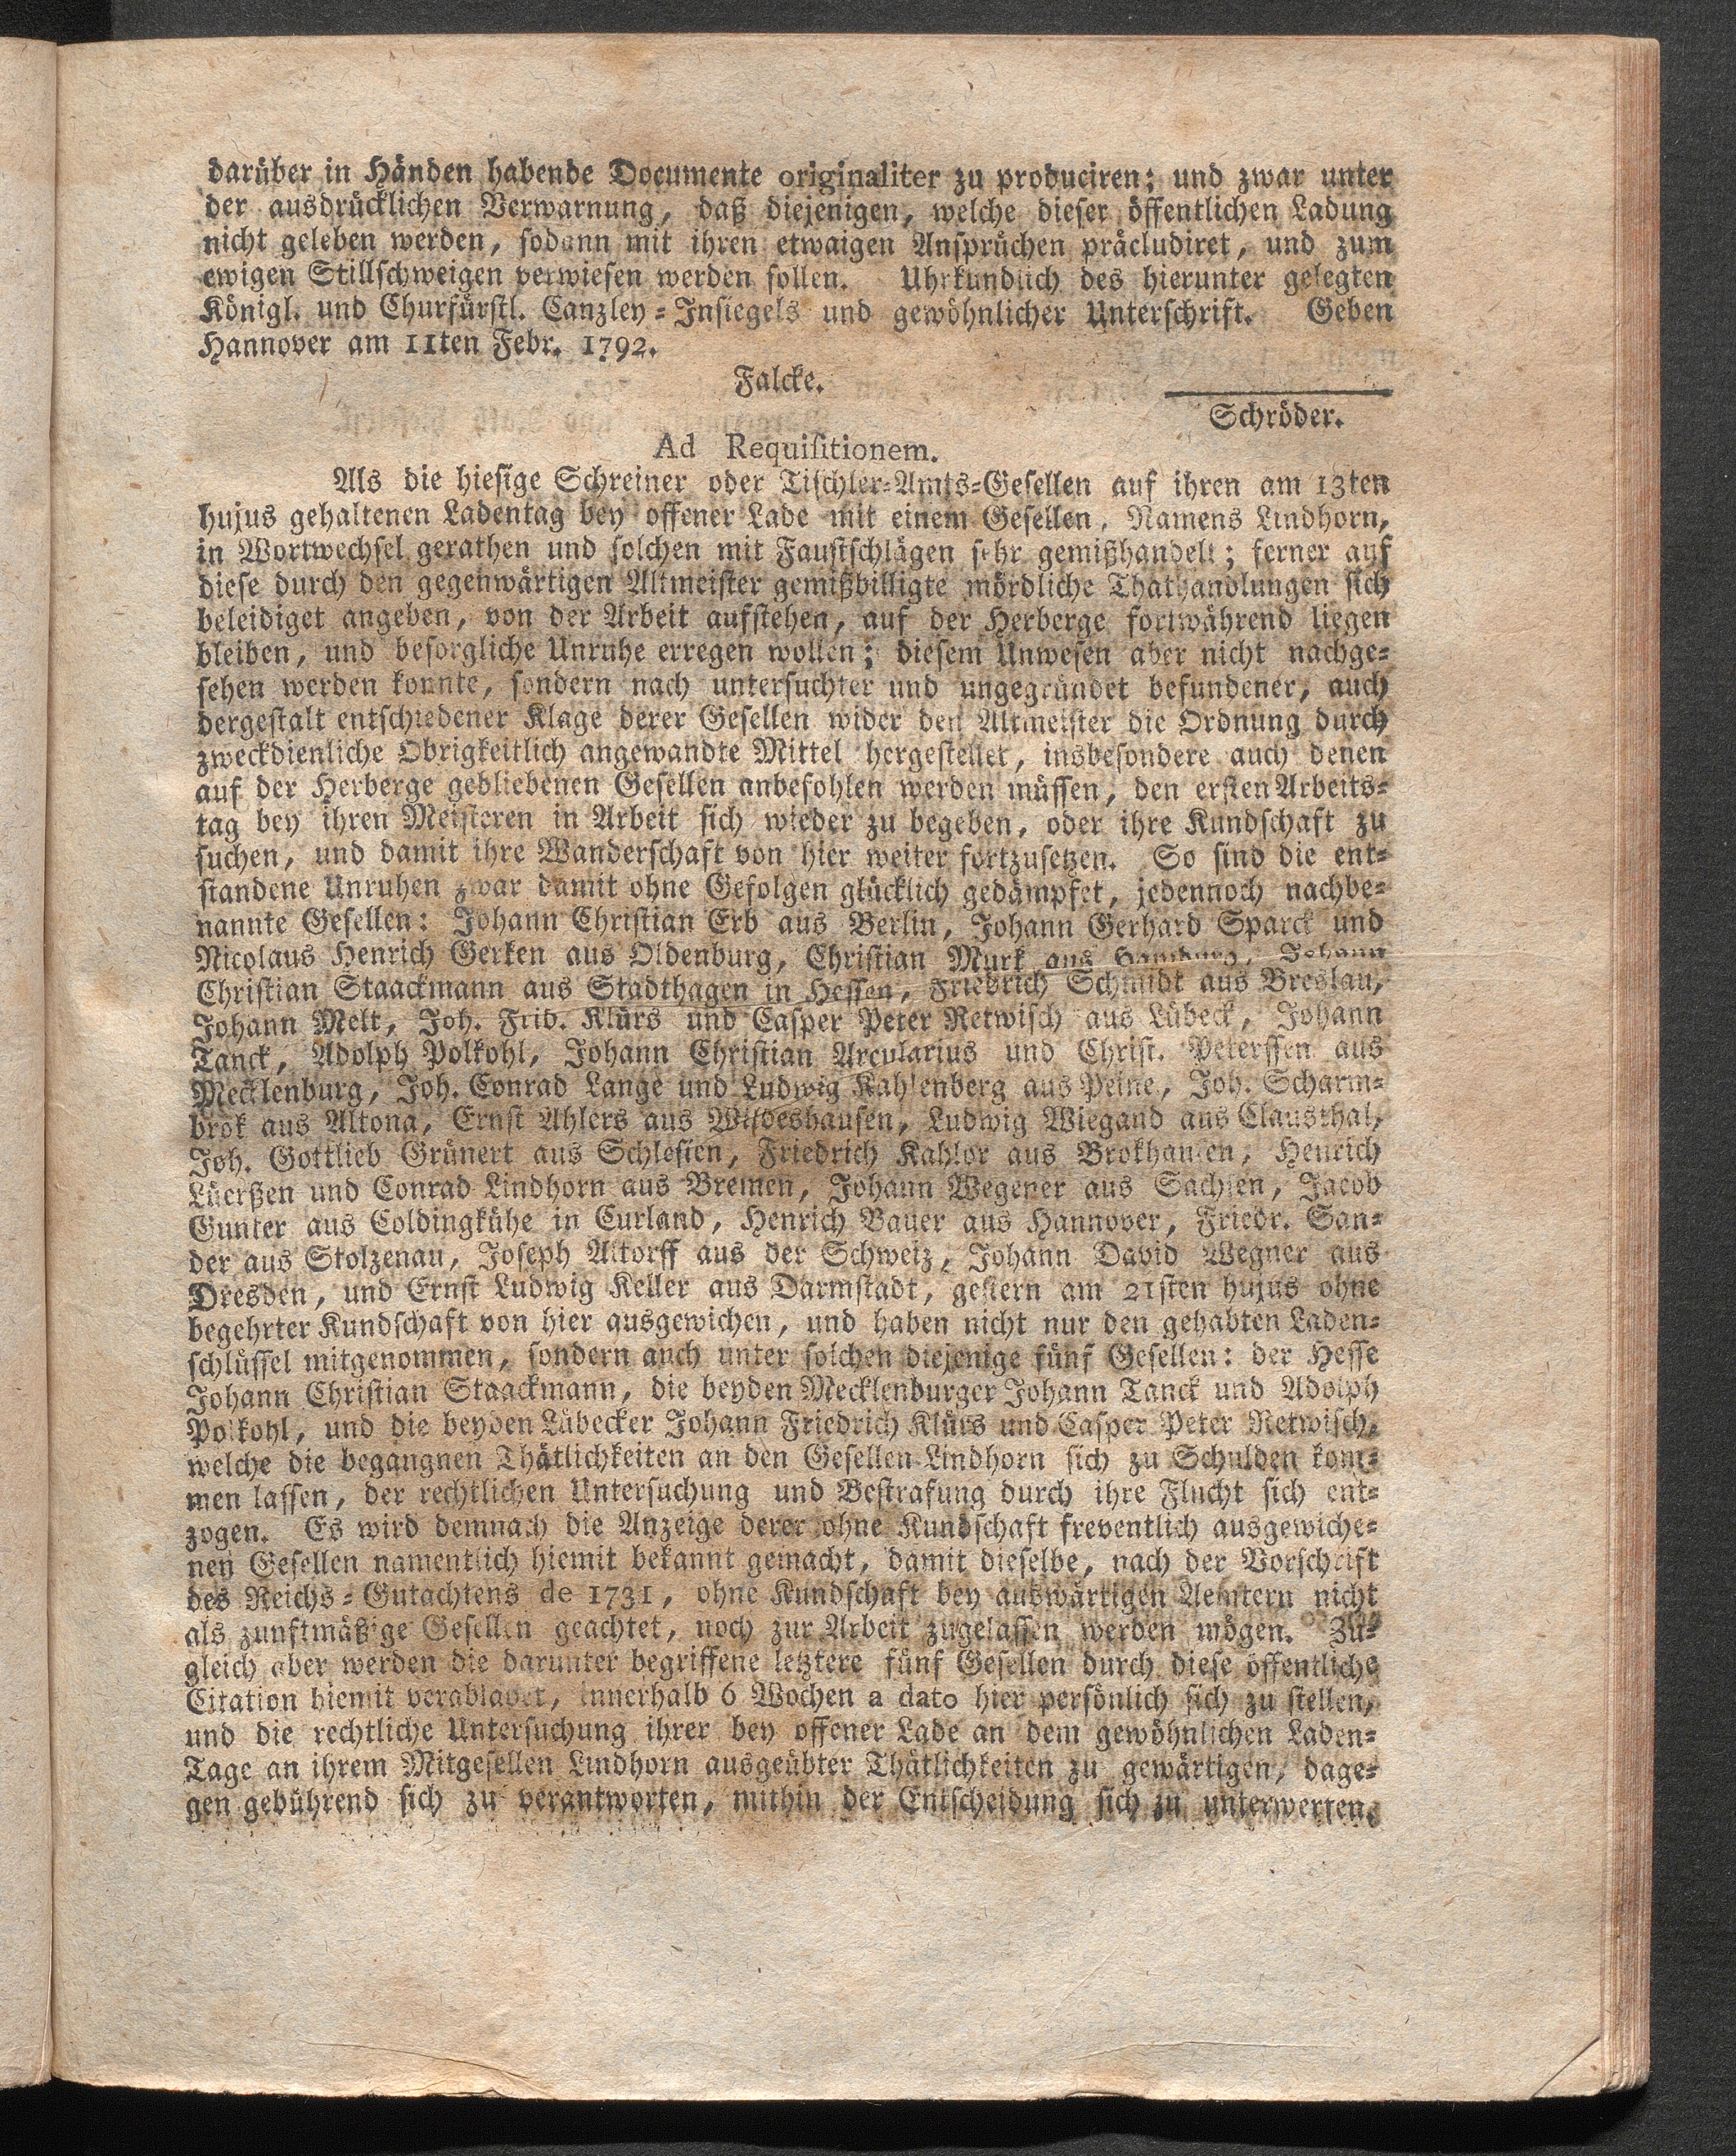 darüber in Händen habende Documente originaliter zu produciren; und zwar unter
der ausdrücklichen Verwarnung, daß diejenigen, welche dieser öffentlichen Ladung
nicht geleben werden, sodann mit ihren etwaigen Ansprüchen präcludiret, und zum
ewigen Stillschweigen verwiesen werden sollen. Uhrkundlich des hierunter gelegten
Königl. und Churfürstl. Canzley-Insiegels und gewöhnlicher Unterschrift. Geben
Hannover am 11ten Febr. 1792.
Falcke.
Schröder.
Ad Requisitionem.
Als die hiesige Schreiner oder Tischler-Amts-Gesellen auf ihren am 13ten
hujus gehaltenen Ladentag bey offener Lade mit einem Gesellen, Namens Lindhorn,
in Wortwechsel gerathen und solchen mit Faustschlägen sehr gemißhandelt; ferner auf
diese durch den gegenwärtigen Altmeister gemißbilligte mördliche Thathandlungen sich
beleidiget angeben, von der Arbeit aufstehen, auf der Herberge fortwährend liegen
bleiben, und besorgliche Unruhe erregen wollen; diesem Unwesen aber nicht nachge-
sehen werden konnte, sondern nach untersuchter und ungegründet befundener, auch
dergestalt entschiedener Klage derer Gesellen wider den Altmeister die Ordnung durch
zweckdienliche Obrigkeitlich angewandte Mittel hergestellet, insbesondere auch denen
auf der Herberge gebliebenen Gesellen anbefohlen werden müssen, den ersten Arbeits-
tag bey ihren Meisteren in Arbeit sich wieder zu begeben, oder ihre Kundschaft zu
suchen, und damit ihre Wanderschaft von hier weiter fortzusetzen. So sind die ent-
standene Unruhen zwar damit ohne Gefolgen glücklich gedämpfet, jedennoch nachbe-
nannte Gesellen: Johann Christian Erb aus Berlin, Johann Gerhard Sparck und
Nicolaus Henrich Gerken aus Oldenburg, Christian Murk aus Hamburg, Johann
Christian Staackmann aus Stadthagen in Hessen, Friedrich Schmidt aus Breslau,
Johann Melt, Joh. Frid. Klürs und Casper Peter Retwisch aus Lübeck, Johann
Tanck, Adolph Polkohl, Johann Christian Arcularius und Christ. Peterssen aus
Mecklenburg, Joh. Conrad Lange und Ludwig Kahlenberg aus Peine, Joh. Scharm-
brok aus Altona, Ernst Ahlers aus Wildeshausen, Ludwig Wiegand aus Clausthal,
Joh. Gottlieb Grünert aus Schlesien, Friedrich Kahlor aus Brokhausen, Henrich
Lüerßen und Conrad Lindhorn aus Bremen, Johann Wegener aus Sachsen, Jacob
Gunter aus Coldingkühe in Curland, Henrich Bauer aus Hannover, Friedr. San-
der aus Stolzenau, Joseph Altorff aus der Schweiz, Johann David Wegner aus
Dresden, und Ernst Ludwig Keller aus Darmstadt, gestern am 21sten hujus ohne
begehrter Kundschaft von hier ausgewichen, und haben nicht nur den gehabten Laden-
schlüssel mitgenommen, sondern auch unter solchen diejenige fünf Gesellen: der Hesse
Johann Christian Staackmann, die beyden Mecklenburger Johann Tanck und Adolph
Polkohl, und die beyden Lübecker Johann Friedrich Klürs und Casper Peter Retwisch,
welche die begangnen Thätlichkeiten an den Gesellen Lindhorn sich zu Schulden kom-
men lassen, der rechtlichen Untersuchung und Bestrafung durch ihre Flucht sich ent-
zogen. Es wird demnach die Anzeige derer ohne Kundschaft freventlich ausgewiche-
nen Gesellen namentlich hiemit bekannt gemacht, damit dieselbe, nach der Vorschrift
des Reichs-Gutachtens de 1731, ohne Kundschaft bey auswärtigen Aemtern nicht
als zunftmäßige Gesellen geachtet, noch zur Arbeit zugelassen werden mögen. Zu-
gleich aber werden die darunter begriffene letztere fünf Gesellen durch diese öffentliche
Citation hiemit verabladet, innerhalb 6 Wochen a dato hier persönlich sich zu stellen,
und die rechtliche Untersuchung ihrer bey offener Lade an dem gewöhnlichen Laden-
Tage an ihrem Mitgesellen Lindhorn ausgeübter Thätlichkeiten zu gewärtigen, dage-
gen gebührend sich zu verantworten, mithin der Entscheidung sich zu unterwerfen,